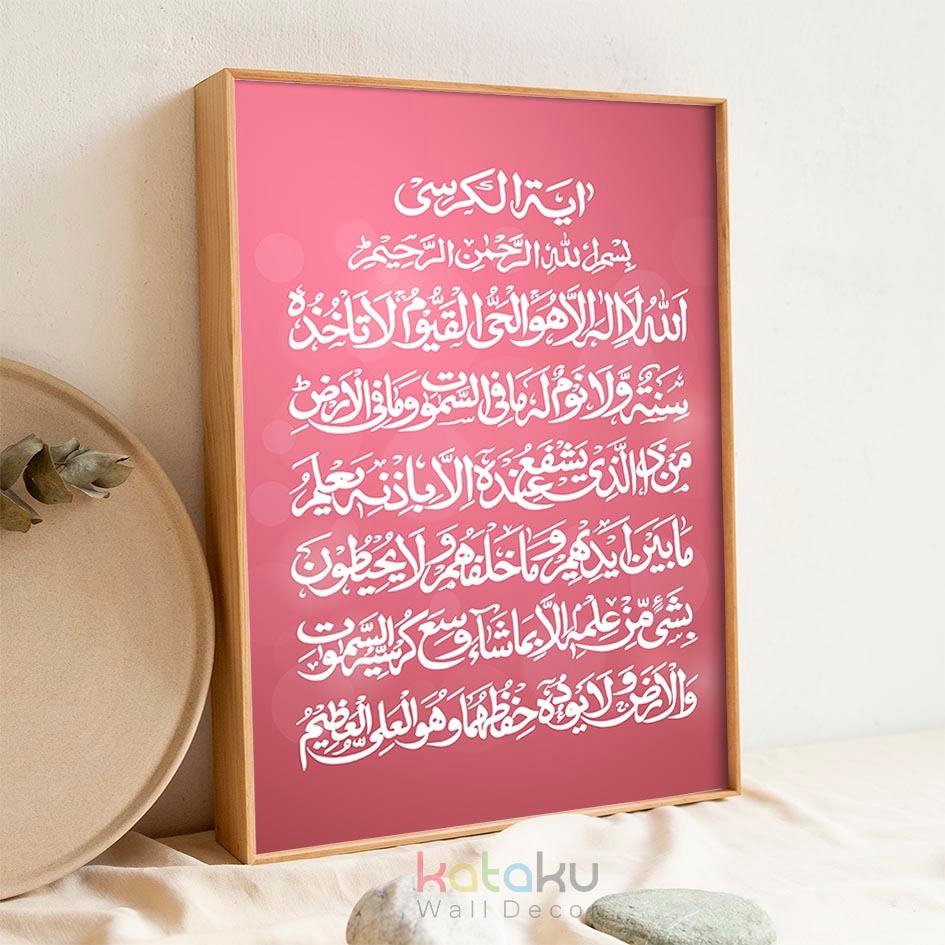 اٰية الكرسى
بِسْمِ اللهِ الرَّحْمٰنِ الرَّحِيْمِ
اَللهُ لَا اِلٰهَ اِلَّا هُوَ الْحَىُّ الْقَيُّوْمُ لَا تَأْخُذُهٗ
سِنَةٌ وَّلَا نَوْمٌ لَهٗ مَا فِى السَّمٰوٰتِ وَمَا فِى الْاَرْضِ
مَنْ ذَا الَّذِىْ يَشْفَعُ عِنْدَهٗٓ اِلَّا بِاِذْنِهٖ يَعْلَمُ
مَا بَيْنَ اَيْدِيْهِمْ وَمَا خَلْفَهُمْ وَلَا يُحِيْطُوْنَ
بِشَىْءٍ مِّنْ عِلْمِهٖٓ اِلَّا بِمَا شَآءَ وَسِعَ كُرْسِيُّهُ السَّمٰوٰتِ
وَالْاَرْضَ وَلَا يَئُوْدُهٗ حِفْظُهُمَا وَهُوَ الْعَلِىُّ الْعَظِيْمُ
kataku
Wall Decor